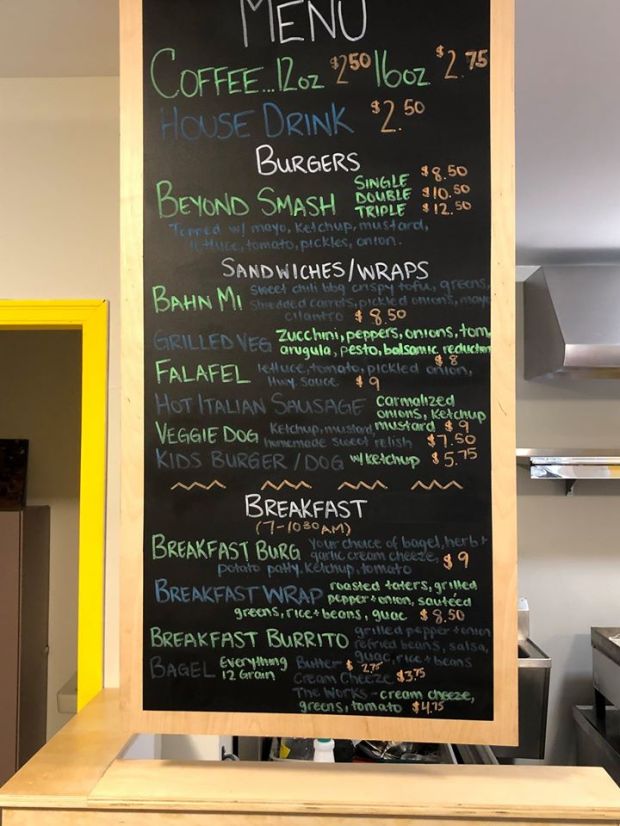 MENU
COFFEE...12oz $2.50 16oz $2.75
HOUSE DRINK $2.50
BURGERS
BEYOND SMASH SINGLE $8.50
DOUBLE $10.50
TRIPLE $12.50
Topped w/ mayo, Ketchup, mustard,
lettuce, tomato, pickles, onion.
SANDWICHES/WRAPS
BAHN MI Sweet chili bbq crispy tofu, greens,
Shredded carrots, pickled onions, mayo
cilantro $8.50
GRILLED VEG Zucchini, peppers, onions, tom
arugula, pesto, balsamic reduction
$8
FALAFEL lettuce, tomato, pickled onion,
Hwy. Sauce $9
HOT ITALIAN SAUSAGE carmalized
onions, Ketchup
mustard $9
VEGGIE DOG Ketchup, mustard,
homemade sweet relish $7.50
KIDS BURGER/DOG w/ketchup $5.75
BREAKFAST
(7-10:30AM)
BREAKFAST BURG Your choice of bagel, herb +
garlic cream cheeze, $9
potato patty, Ketchup, tomato
BREAKFAST WRAP roasted taters, grilled
pepper + onion, sautéed
greens, rice + beans, guac $8.50
BREAKFAST BURRITO grilled pepper + onion
refried beans, salsa,
guac, rice + beans
BAGEL Everything
12 Grain
Butter $2.75
Cream Cheeze $3.75
The Works - cream cheeze,
greens, tomato $4.75